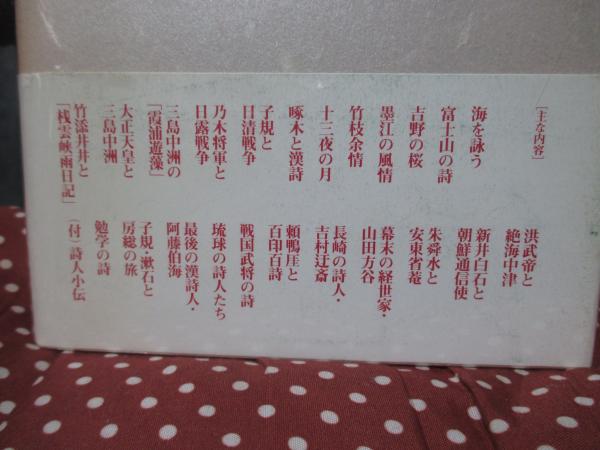 ［主な内容］
海を詠う
富士山の詩
吉野の桜
墨江の風情
竹枝余情
十三夜の月
啄木と漢詩
子規と
日清戦争
乃木将軍と
日露戦争
三島中洲の
「霞浦遊藻」
大正天皇と
三島中洲
竹添井井と
「桟雲峡雨日記」
洪武帝と
絶海中津
新井白石と
朝鮮通信使
朱舜水と
安東省菴
幕末の経世家・
山田方谷
長崎の詩人・
吉村迂斎
頼鴨厓と
百印百詩
戦国武将の詩
琉球の詩人たち
最後の漢詩人・
阿藤伯海
子規・漱石と
房総の旅
勉学の詩
（付）詩人小伝